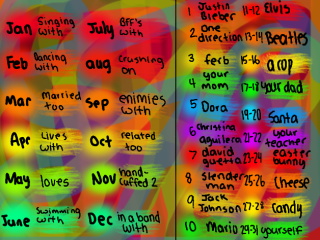 Jan Singing with
Feb Dancing with
Mar married too
Apr Lives with
May loves
June Swimming with
July BFF's with
aug crushing on
Sep enimies with
Oct related too
Nov hand-cuffed 2
Dec in a band with
1 Justin Bieber
2 One direction
3 ferb
4 your mom
5 Dora
6 Christina aguilera
7 david guetta
8 slender man
9 Jack Johnson
10 Mario
11-12 Elvis
13-14 Beatles
15-16 a cop
17-18 your dad
19-20 Santa
21-22 your teacher
23-24 easter bunny
25-26 Cheese
27-28 candy
29-31 yourself